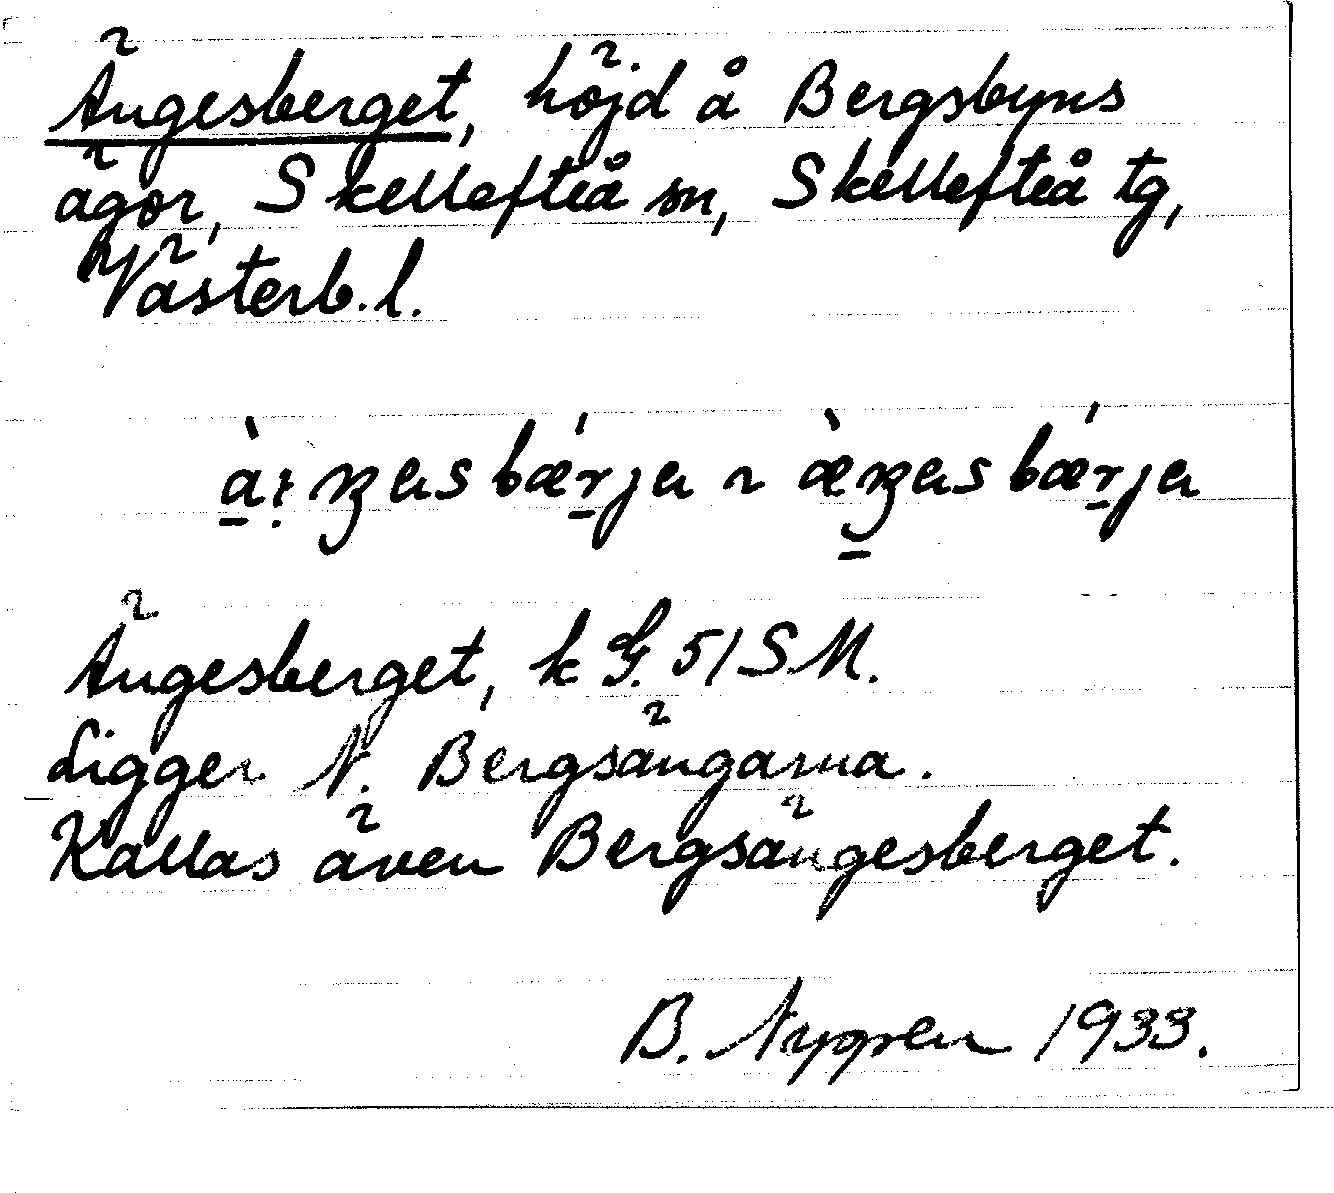 Ängesberget, höjd å Bergsbyns
ägor, Skellefteå sn, Skellefteå tg,
Västerb. l.
Ängesberget, k G. 51 S M.
Ligger N. Bergsängarna.
Kallas även Bergsängesberget.
B. 1933.